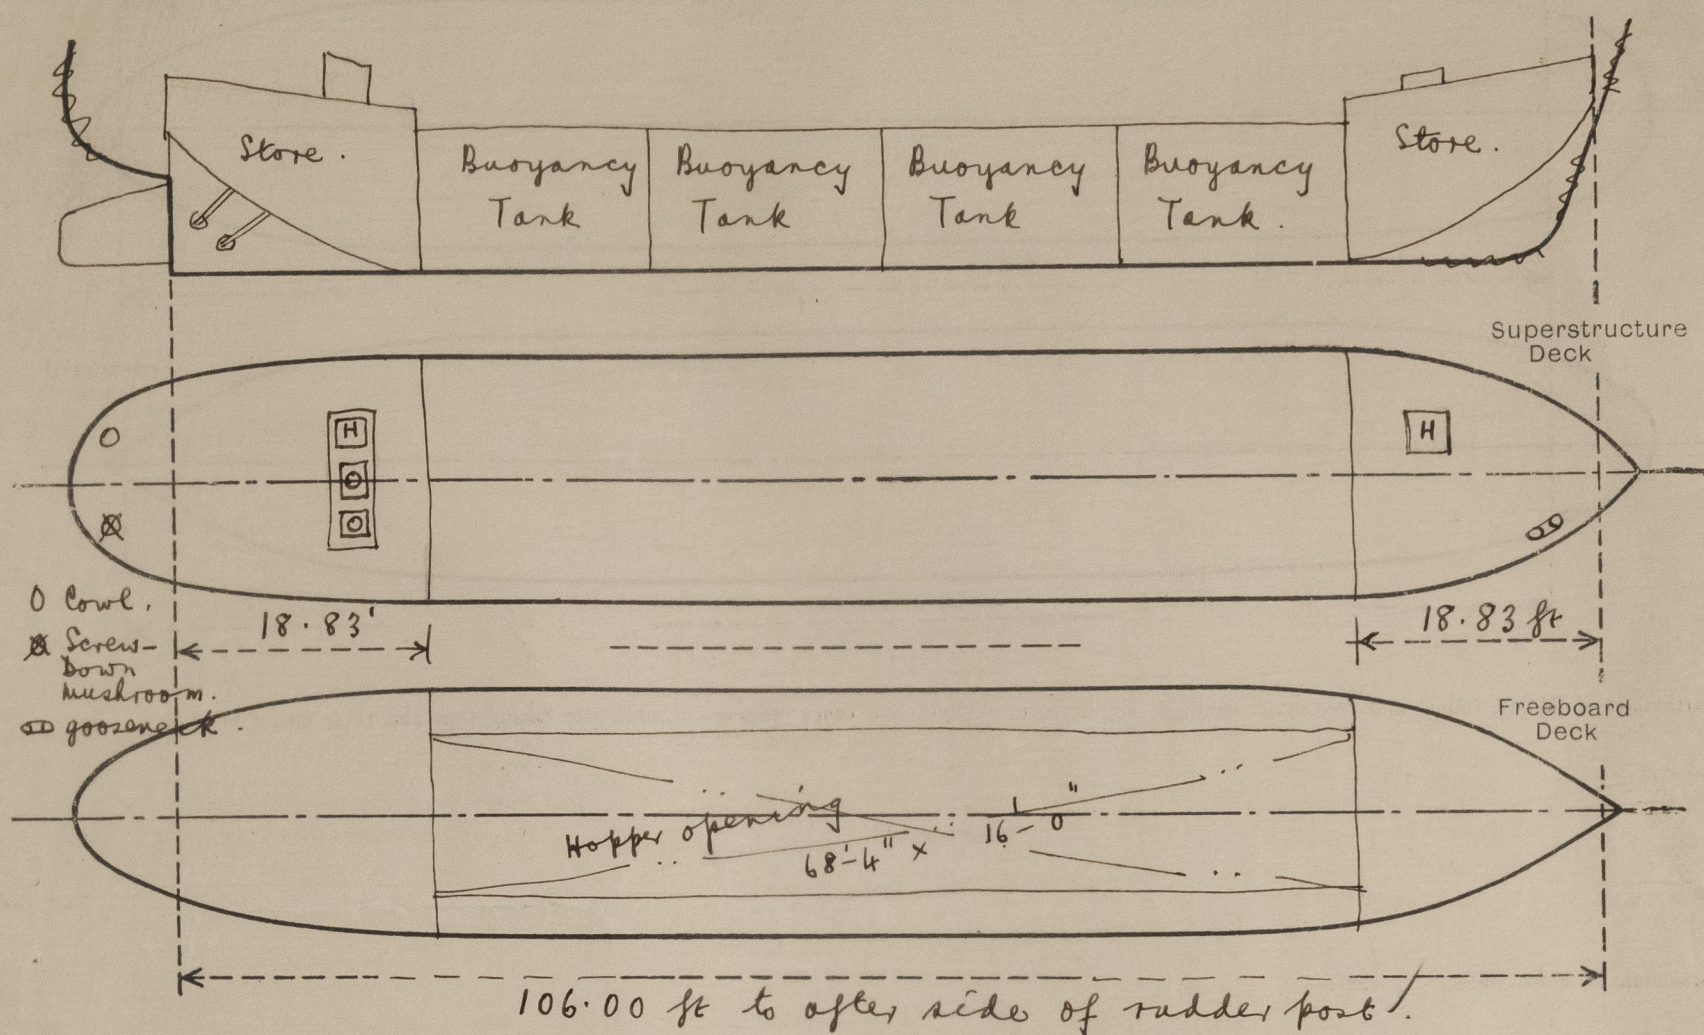 Store.
Buoyancy
Tank
Buoyancy
Tank
Buoyancy
Tank
Buoyancy
Tank.
Store.
Superstructure
Deck
H
H
O Cowl.
Screw-
Down
mushroom.
gooseneck.
18.83'
18.83 ft
Freeboard
Deck
Hopper opening
68'-4" x 16'-0"
106.00 ft to after side of rudder post.